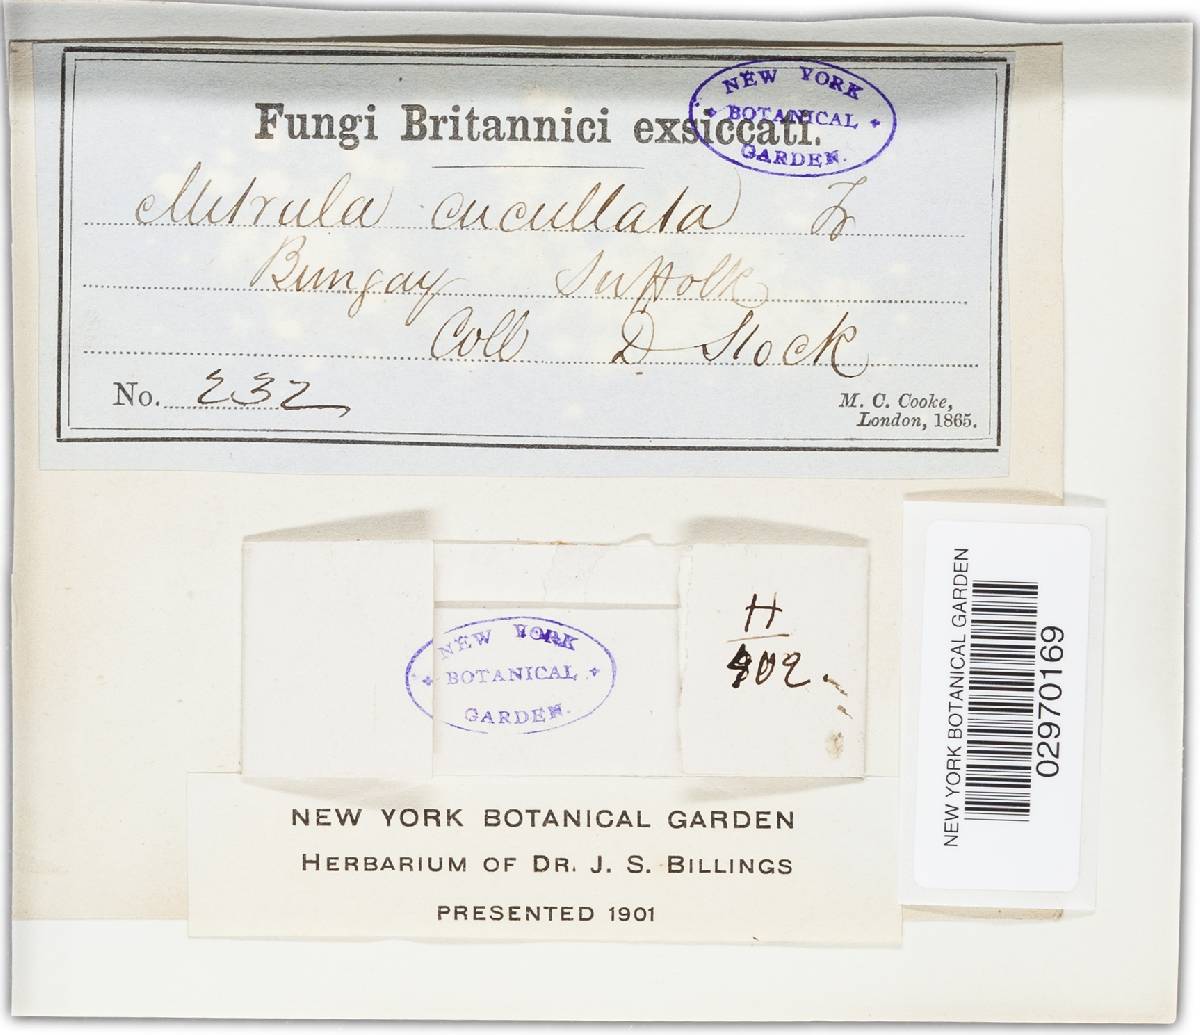 Fungi Britannici exsiccati.
NEW YORK
BOTANICAL
GARDEN.
Mitrula cucullata Fr
Bungay Suffolk
Coll D Stock
No. 232
M. C. Cooke,
London, 1865.
NEW YORK
BOTANICAL
GARDEN.
H
402
NEW YORK BOTANICAL GARDEN
02970169
NEW YORK BOTANICAL GARDEN
HERBARIUM OF DR. J. S. BILLINGS
PRESENTED 1901